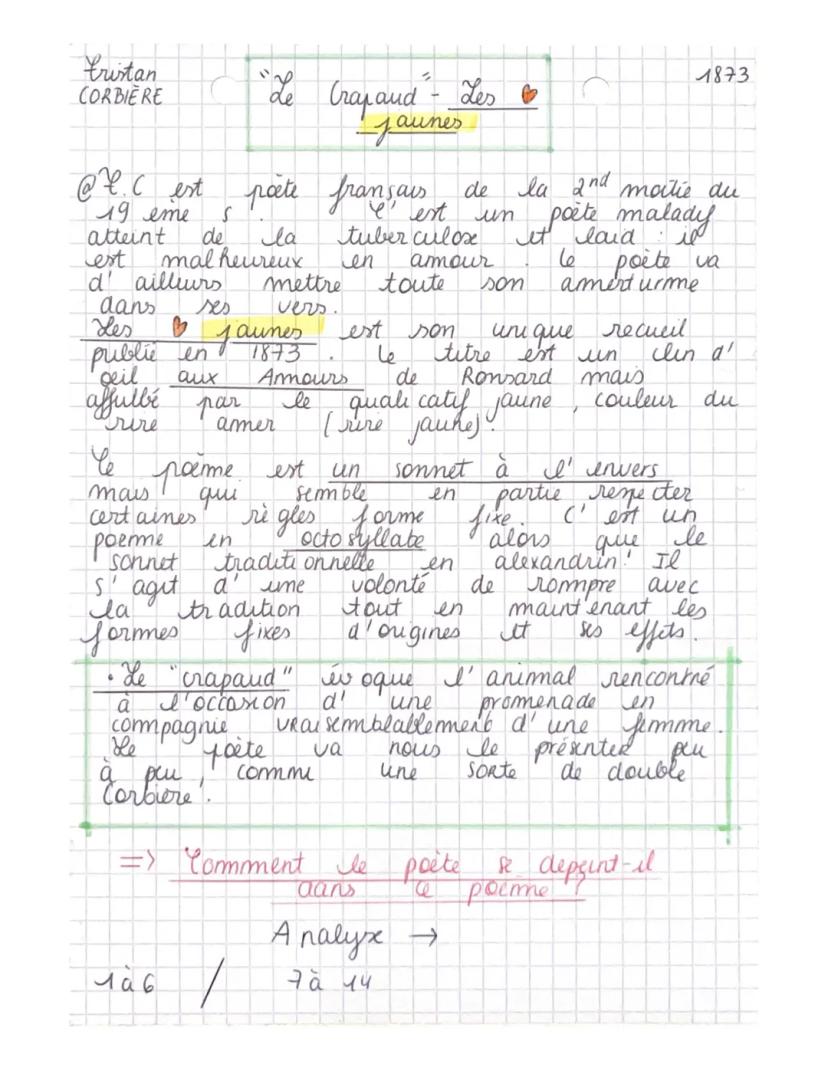 Tristan
CORBIÈRE
"Le Crapaud" - Les ♥
jaunes
1873
@ T.C est poète français de la 2nd moitié du
19 eme s. C'est un poète malady
atteint de la tuberculose et laid : il
est malheureux en amour. Le poète va
d'ailleurs mettre toute son amerturme
dans ses vers.
Les ♥ jaunes est son unique recueil
publié en 1873. Le titre est un clin d'
œil aux Amours de Ronsard mais
affulbé par le qualicatif jaune, couleur du
rire amer (rire jaune).
Ce poème est un sonnet à l'envers
mais qui semble en partie respecter
certaines règles forme fixe. C'est un
poème en octosyllabe alors que le
sonnet traditionnelle en alexandrin. Il
s'agit d'une volonté de rompre avec
la tradition tout en maintenant les
formes fixes d'origines et ses effets.
• Le "crapaud" évoque l'animal rencontré
à l'occasion d'une promenade en
compagnie vraisemblablement d'une femme.
Le poète va nous le présenter peu
à peu, comme une sorte de double
Corbière.
=> Comment le poète se depeint-il
dans ce poème ?
Analyse →
1 à 6 / 7 à 14